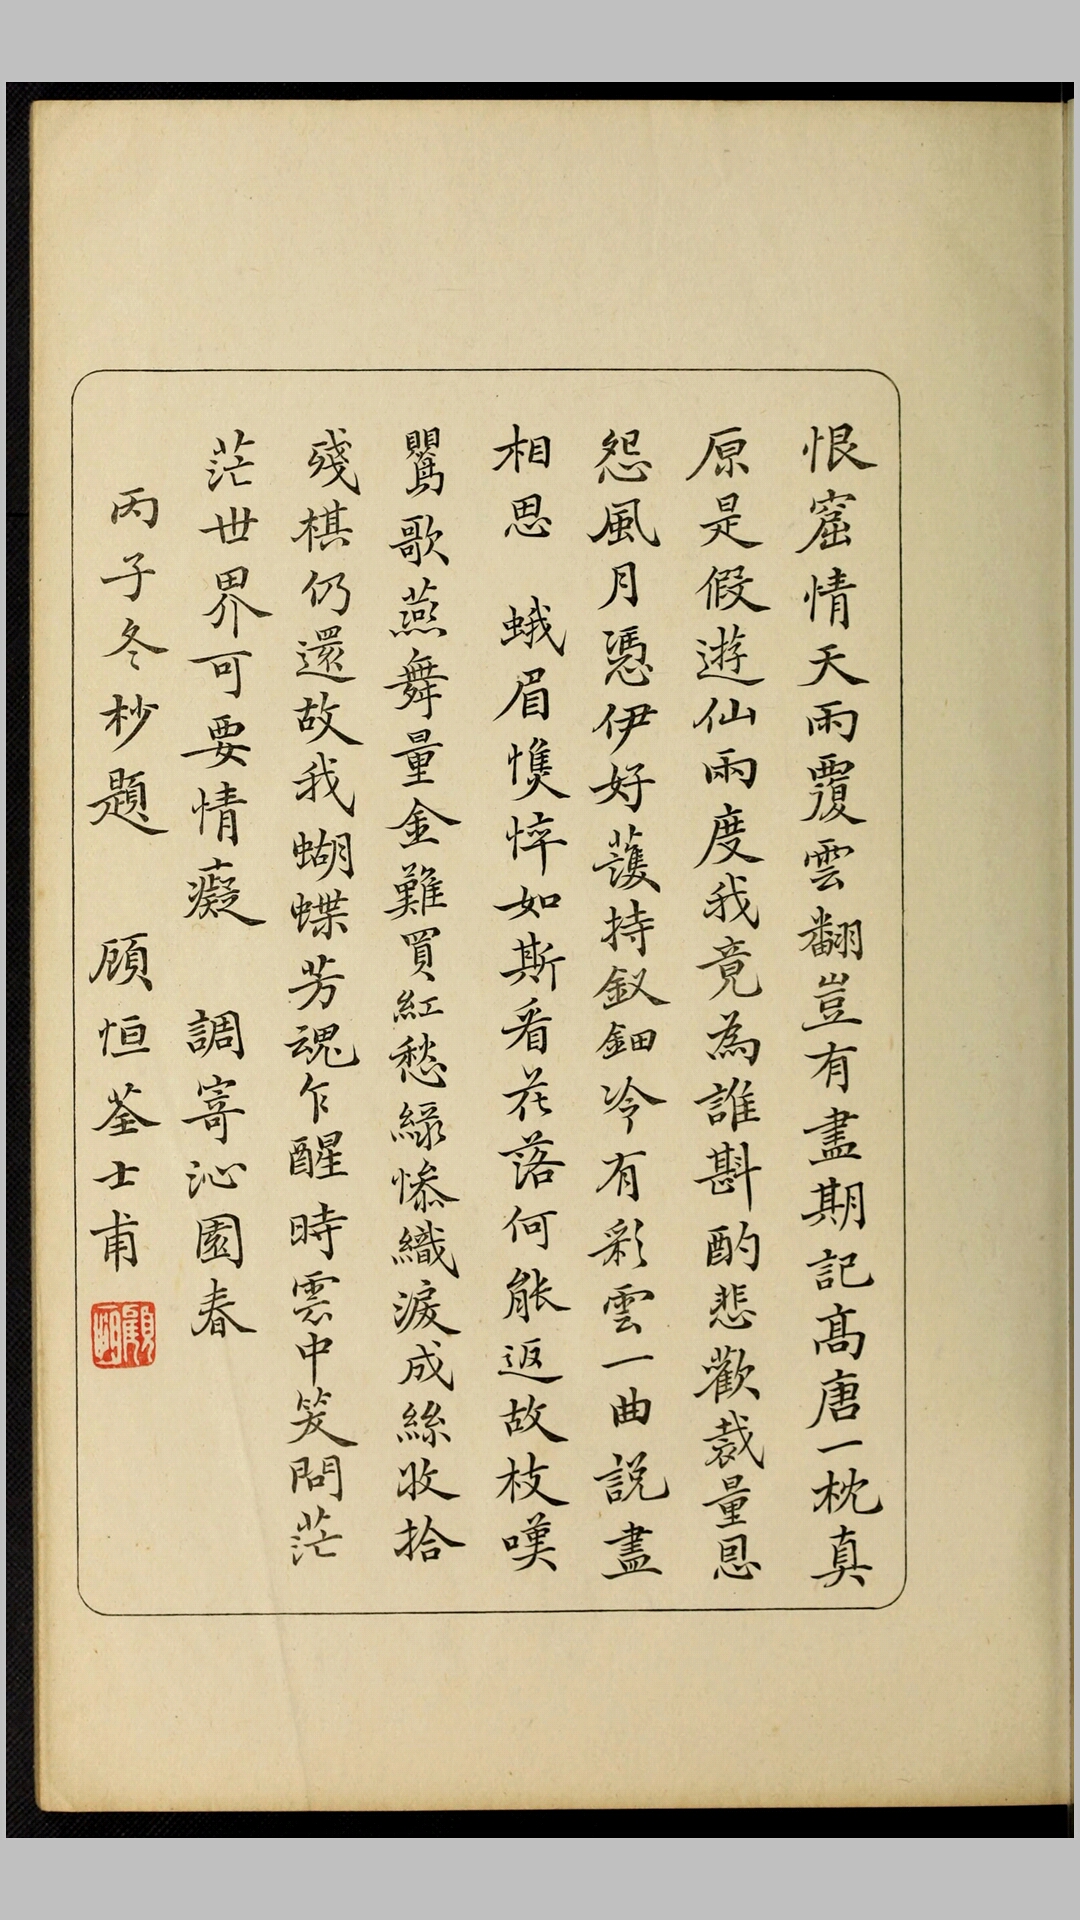 恨窟情天雨覆雲翻豈有盡期記髙唐一枕真
原是假遊仙兩度我竟為誰斟酌悲歡裁量恩
怨風月憑伊好護持釵鈿冷有彩雲一曲説盡
相思　蛾眉憔悴如斯看花落何能返故枝嘆
鸎歌燕舞量金難買紅愁緑慘織淚成絲收拾
殘棋仍還故我蝴蝶芳魂乍醒時雲中笑問茫
茫世界可要情癡　調寄沁園春
丙子冬杪題　顧恒荃士甫